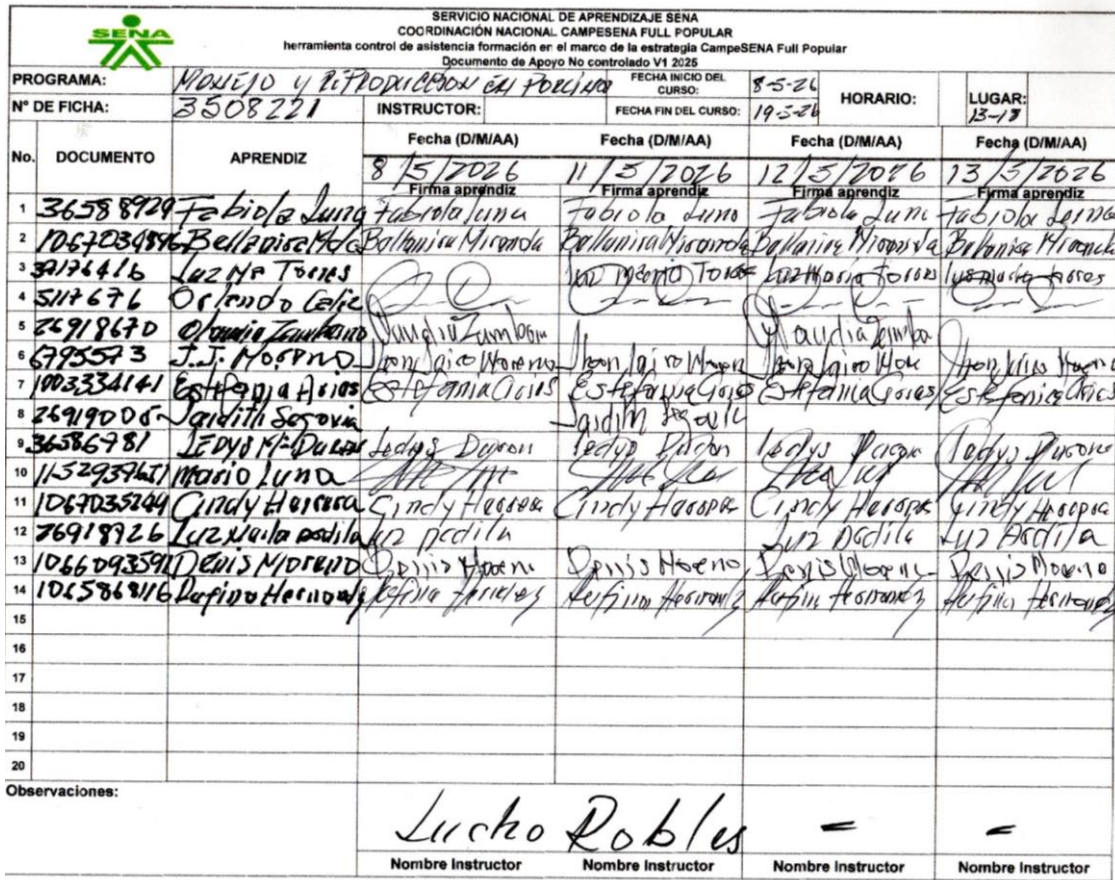 SENA
SERVICIO NACIONAL DE APRENDIZAJE SENA
COORDINACIÓN NACIONAL CAMPESENA FULL POPULAR
herramienta control de asistencia formación en el marco de la estrategia CampeSENA Full Popular
Documento de Apoyo No controlado V1 2025
PROGRAMA: Manejo y Reproduccion en Porcino FECHA INICIO DEL CURSO: 8-5-26 HORARIO: LUGAR: 13-18
N° DE FICHA: 3508221 INSTRUCTOR: FECHA FIN DEL CURSO: 19-5-26
No. DOCUMENTO APRENDIZ Fecha (D/M/AA) Fecha (D/M/AA) Fecha (D/M/AA) Fecha (D/M/AA)
8/5/2026 11/5/2026 12/5/2026 13/5/2026
Firma aprendiz Firma aprendiz Firma aprendiz Firma aprendiz
1 36588929 Fabiola Luna Fabiola luna Fabiola Luna Fabiola Luna Fabiola Luna
2 Bellanira Bellanira Miranda Bellanira Miranda Bellanira Miranda Bellanira Miranda
3 Luz Ma Torres luz maria Torres luz Maria Torres luz maria torres
4 5117676 Orlando
5 26918670 Claudia Zambrano Claudia Zambrano Claudia
6 6795573 J.J. Moreno Jhon Jairo Moreno Jhon Jairo Jhon Jairo Jhon
7 1003334141 Estefania Arias Estefania Arias Estefania Arias Estefania Arias Estefania Arias
8 Saidith Segovia Saidith Segovia
9 36586781 Ledys Ma Duran Ledys Duran Ledys Duran Ledys Duran Ledys Duran
10 Mario Luna
11 1067035244 Cindy Herrera Cindy Herrera Cindy Herrera Cindy Herrera Cindy Herrera
12 26918926 Luz padila Luz padila Luz padila Luz
13 Denis Moreno Denis Moreno Denis Moreno Denis Moreno Denis Moreno
14 1065868116 Rufino Hernandez Rufino Hernandez Rufino Hernandez Rufino Hernandez Rufino Hernandez
15
16
17
18
19
20
Observaciones:
Lucho Robles = =
Nombre Instructor Nombre Instructor Nombre Instructor Nombre Instructor